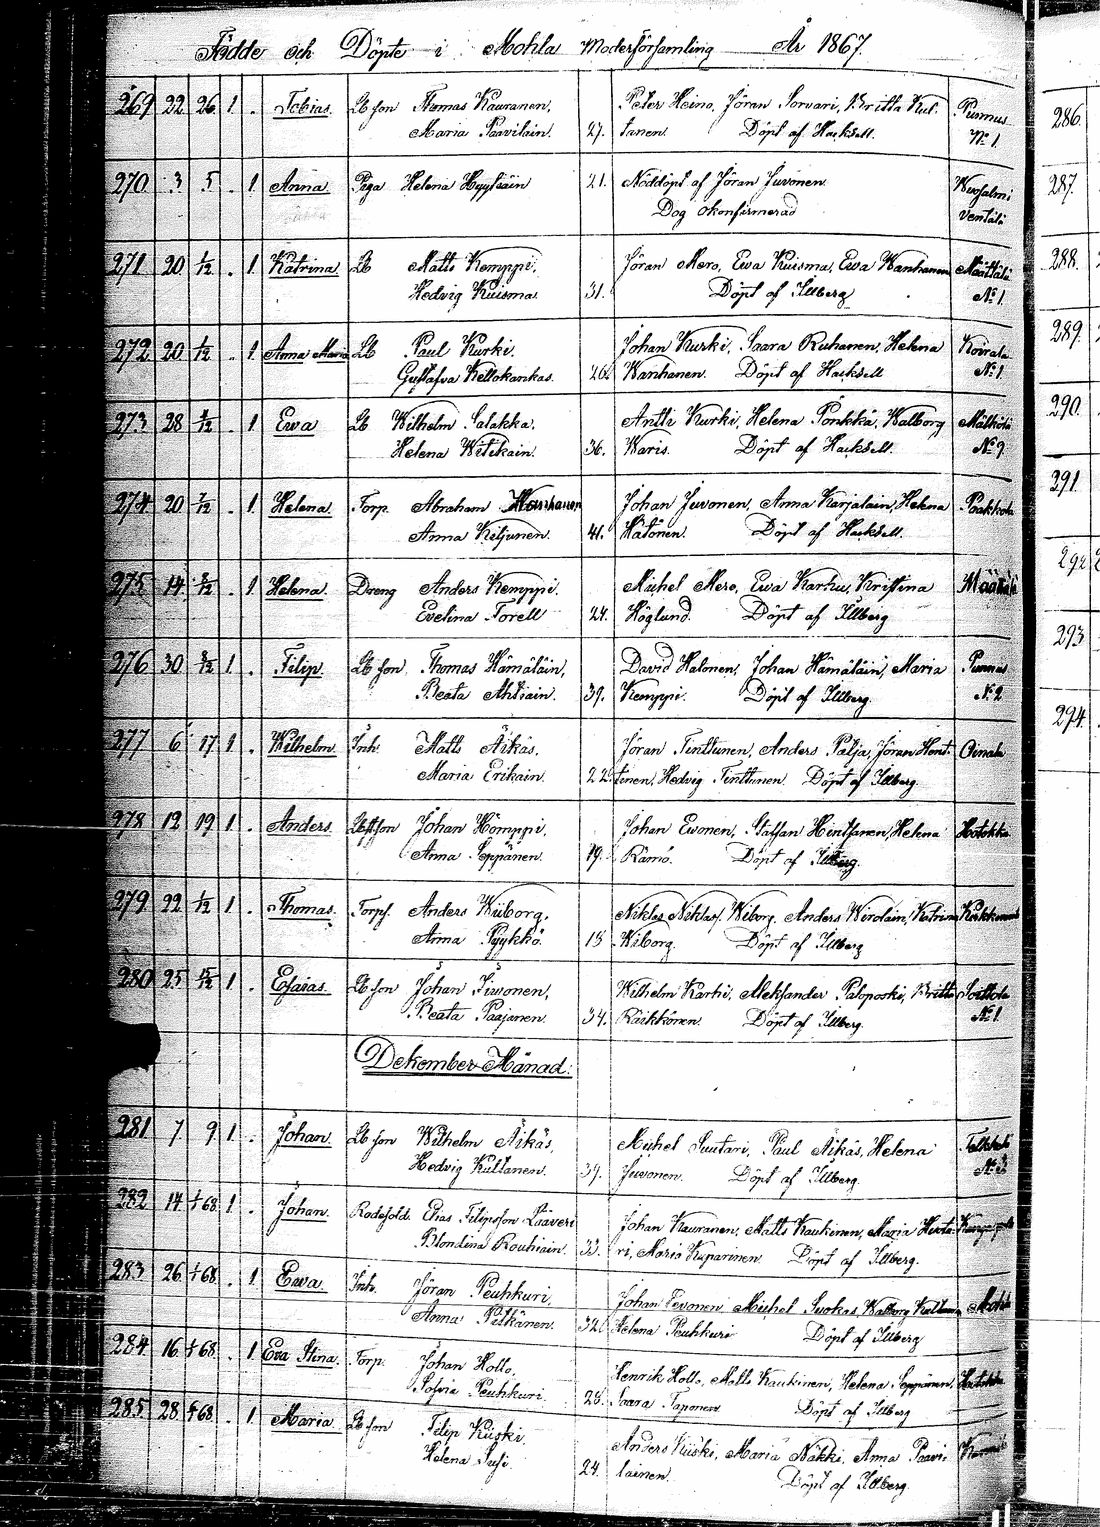 Födde och Döpte i Mohla Moderförsamling År 1867.
269 22 26 1 . Tobias. Lb son Thomas Kauranen, Peter Heino, Jöran Sorvari, Britta Kul- Punnus
Maria Paavilain. 27. tanen. Döpt af Hacksell. N:o 1
270 3 5 . 1. Anna Piga Helena Hyytiäin 21. Nöddöpt af Jöran Juvonen. Wuosalmi
Dog okonfirmerad Ventälä
271 20 1/12 . 1 Katrina Lb Matts Kemppi, Jöran Mero, Ewa Kuisma, Ewa Wanhanen Määttälä
Hedvig Kuisma. 31. Döpt af Illberg N:o 1.
272 20 1/12 . 1 Anna Maria Lb Paul Kurki, Johan Kurki, Saara Ruhanen, Helena Koirala
Gustafva Kellokankas. 26. Wanhanen. Döpt af Hacksell N:o 1.
273 28 /12 . 1 Ewa Lb Wilhelm Salakka, Antti Kurki, Helena Pönkkä, Walborg Mälkölä
Helena Witikain. 36. Waris. Döpt af Hacksell. N:o 9
274 20 /12 . 1. Helena. Torp. Abraham Johan Juvonen, Anna Karjalain, Helena Paakkola
Anna Kiljunen. 41. Hätönen. Döpt af Hacksell.
275 14 /12 . 1 Helena. Dreng Anders Kemppi, Michel Mero, Ewa Karhu, Kristina Määttälä
Evelina Forell 24. Höglund. Döpt af Illberg
276 30 /12 1 . Filip. Lb son Thomas Hämäläin, David Halonen, Johan Hämäläin, Maria Punnus
Beata Ahtiain. 39. Kemppi. Döpt af Illberg. N:o 2
277 6 17 1 . Wilhelm. Inh. Matts Äikäs, Jöran Tinttunen, Anders Palja, Jöran Hent- Oinala
Maria Erikäin. 22. tinen, Hedvig Tinttunen. Döpt af Illberg.
278 12 19 1 . Anders. Johan Hömppi, Johan Ewonen, Staffan Hintsanen, Helena Hotokka
Anna Seppänen. 19. Rämö. Döpt af Illberg.
279 22 1/12 1 . Thomas. Torps. Anders Wiiborg, Niklas Niklass. Wiborg, Anders Wirolain, Katrina
Anna Pyykkö. 15 Wiborg. Döpt af Illberg
280 25 /12 1 . Esaias. Lb son Johan Siwonen, Wilhelm Karhi, Aleksander Paloposki, Britta Soittola
Beata Paajanen. 34. Räikkönen. Döpt af Illberg. N:o 1.
Dekember Månad.
281 7 9 1 . Johan. Lb son Wilhelm Äikäs, Michel Suutari, Paul Äikäs, Helena
Hedvig Kultanen. 39. Juvonen. Döpt af Illberg.
282 14 68 1 . Johan. Elias Filipsson Lääveri Johan Kauranen, Matts Kaukinen, Maria
Blondina Rouhiain. 33. ri, Maria Kuparinen. Döpt af Illberg.
283 26 68 . 1. Ewa. Inh. Jöran Peuhkuri, Johan Tevonen, Michel Suokas, Walborg Mohla
Anna Pitkänen. 32. Helena Peuhkuri Döpt af Illberg
284 16 68 . 1 Eva Stina. Torp. Johan Hollo, Henrik Hollo, Matts Kaukinen, Helena Seppänen,
Sofvia Peuhkuri. 28. Saara Taponen Döpt af Illberg
285 28 68 . 1 Maria Lb son Filip Kuiski Anders Kuiski, Maria Näkki, Anna Paavi-
Helena Susi. 24. lainen. Döpt af Illberg.
286.
287.
288.
289.
290.
291.
292
293
294.